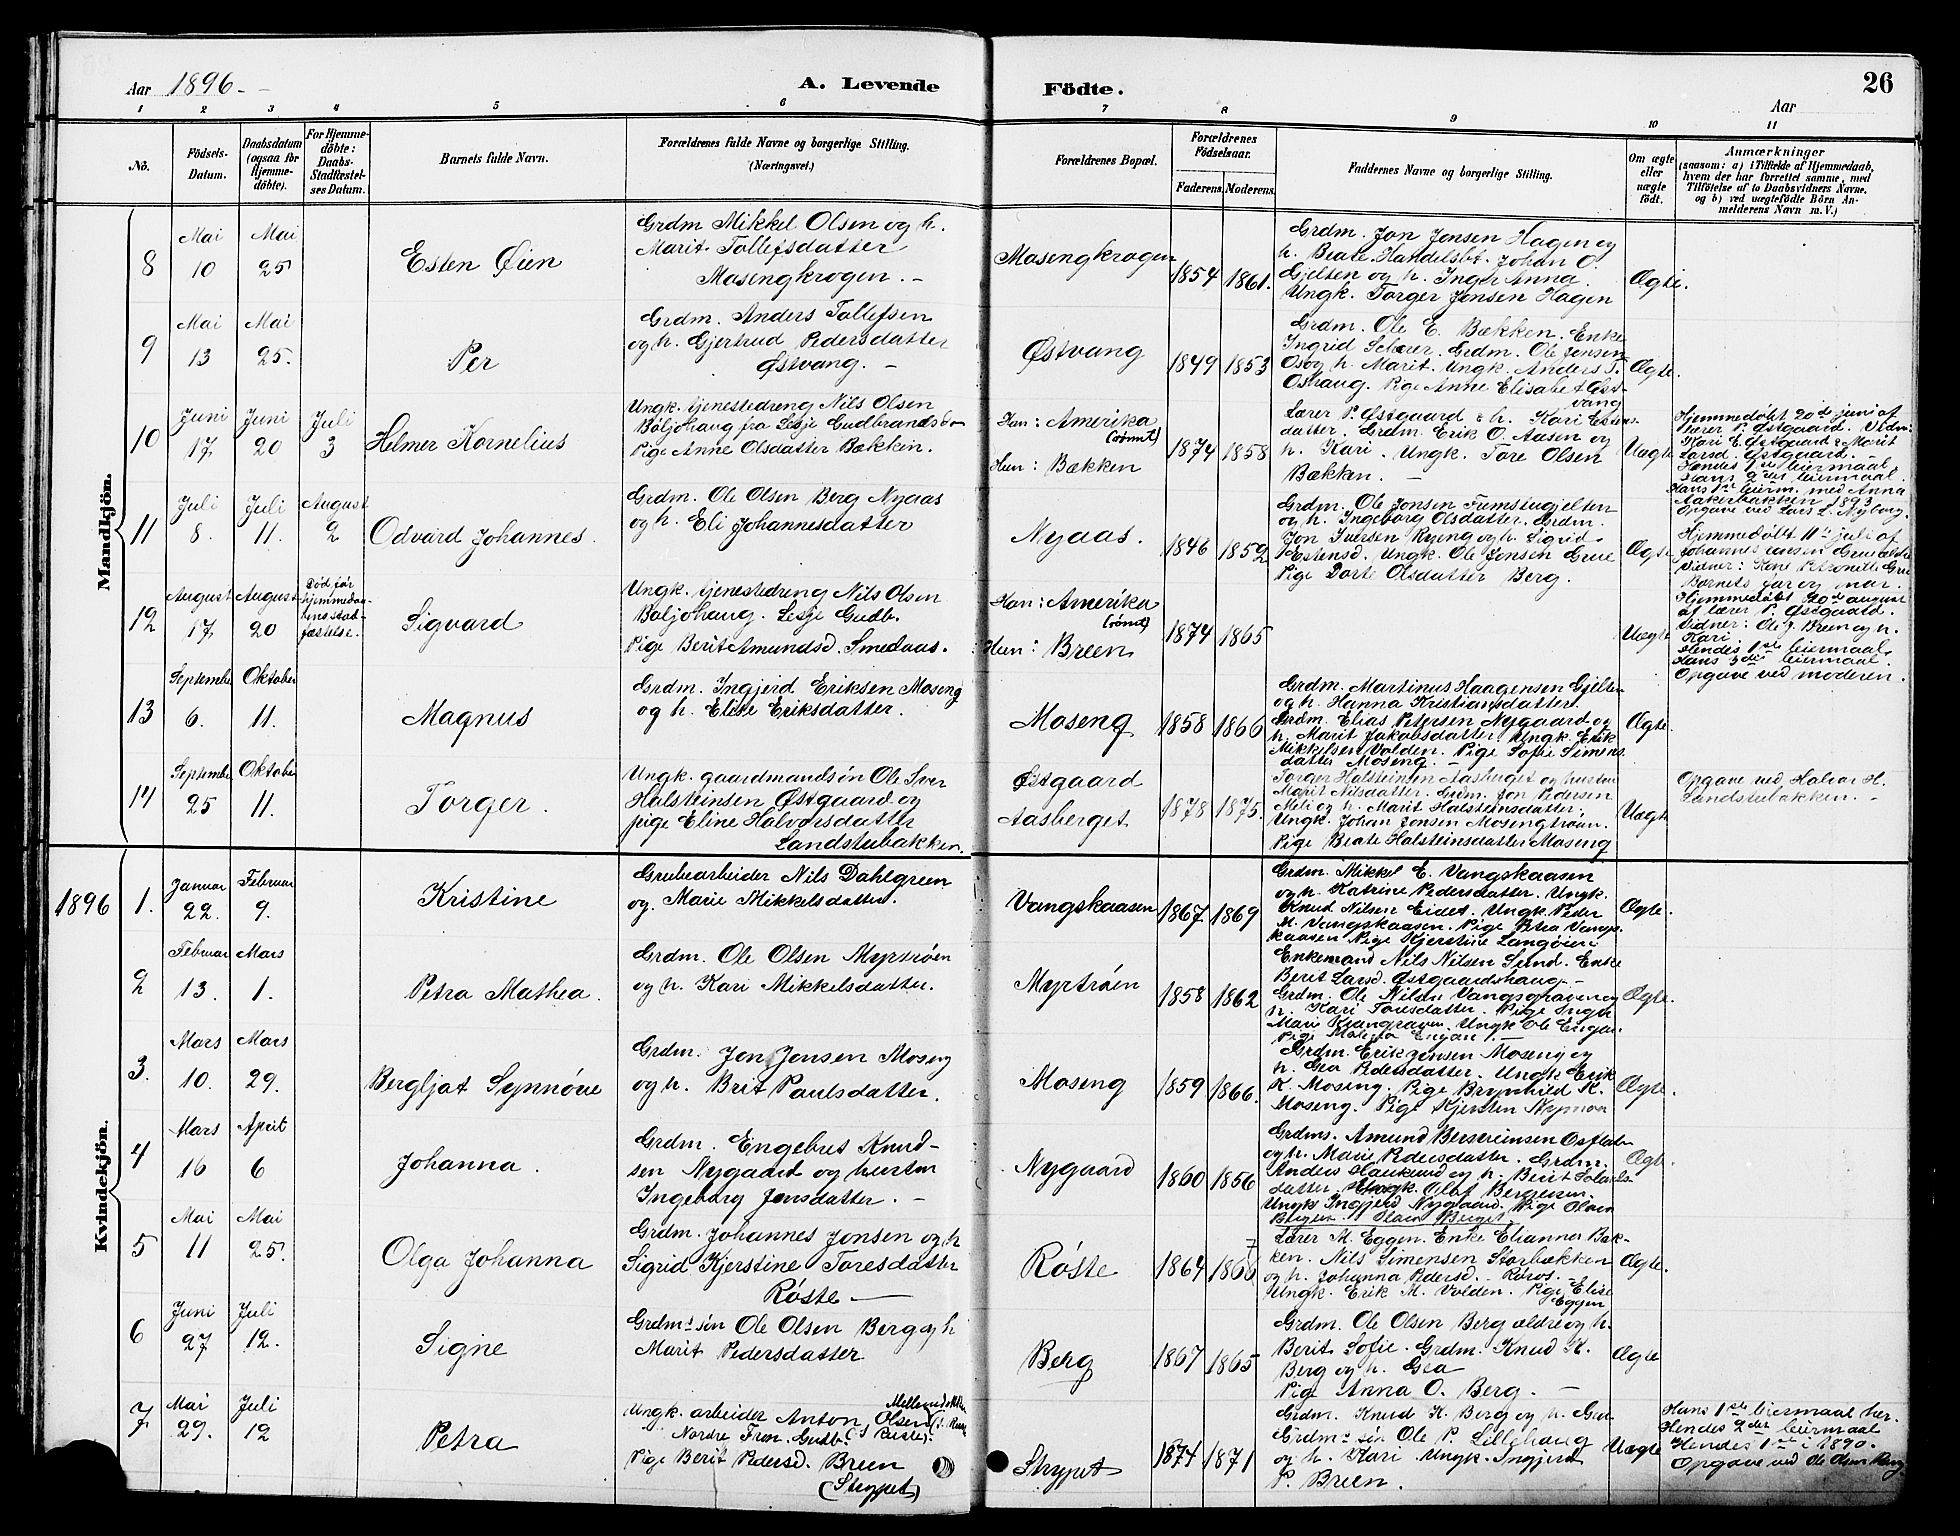 Aar 1896.
A. Levende
Födte.
Aar
26
1 2 3 4 5 6 7 8 9 10 11
No.
Födsels-
Datum.
Daabsdatum
(ogsaa for
Hjemme-
döbte).
For Hjemme-
döbte:
Daabs-
Stadfæstel-
ses Datum.
Barnets fulde Navn.
Forældrenes fulde Navne og borgerlige Stilling.
(Næringsvei.)
Forældrenes Bopæl.
Forældrenes
Födselsaar.
Faderens. Moderens.
Faddernes Navne og borgerlige Stilling.
Om ægte
eller
uægte
födt.
Anmærkninger
(saasom: a) i Tilfælde af Hjemmedaab,
hvem der har forrettet samme, med
Tilföielse af to Daabsvidners Navne,
og b) ved uægtefödte Börn An-
melderens Navn m. V.)
Mandkjön.
8
Mai
10
Mai
25
Esten Øien
Grdm Mikkel Olsen og h.
Marit Tollefsdatter
Mosengkrogen.
Mosengkrogen
1854 1861.
Grdm. Jon Jensen Hagen og
h. Beate Handelsbt. Johan O.
Gjelten og h. Inger Anna.
Ungk. Torger Jensen Hagen
Ægte.
9
Mai
13
Mai
25.
Per
Grdm. Anders Tollefsen
og h. Gjertrud Pedersdatter
Østvang.
Østvang
1849 1853
Grdm. Ole E. Bækken. Enke
Ingrid Scherer. Grdm. Ole Jensen
Os og h. Marit. Ungk. Anders T.
Oshaug. Pige Anne Elisabet Øst-
vang
Ægte.
10
Juni
17
Juni
20
Juli
3
Helmer Kornelius
Ungk. tjenestedreng Nils Olsen
Böljohaug fra Lesje Gudbrandsd.
Pige Anne Olsdatter Bækken.
Han: Amerika
(römt)
Hun: Bækken
1874 1858
Lærer P. Østgaard & h. Kari Estens-
datter. Grdm. Erik O. Aasen og
h. Kari. Ungk. Tore Olsen
Bækken.
Uægte
Hjemmedøbt 20de juni af
lærer P. Østgaard. Vidn:
Kari E. Østgaard & Marit
Larsd. Østgaard.
Hendes 1ste leiermaal
Hans 2det leiermaal.
Hans 1ste leierm. med Anna
Aakerbakken 1893
Opgave ved Lars L. Nyborg.
11
Juli
8.
Juli
11.
August
2
Odvard Johannes.
Grdm. Ole Olsen Berg Nyaas
og h. Eli Johannesdatter
Nyaas.
1846 1852
Grdm. Ole Jonsen Tufmstugjelten
og h. Ingeborg Olsdatter. Grdm.
Jon Iversen Ryeng og h. Sigrid
Estensd. Ungk. Ole Jonsen Grue
Pige Dorte Olsdatter Berg.
Ægte
Hjemmedøbt 11te juli af
Johannes Jansen Grue
Vidner:
Barnets far og mor.
12
August
17
August
20
Död før
hjemmedaa-
bens stad-
fæstelse.
Sigvard
Ungk. tjenestedreng Nils Olsen
Böljohaug. Lesje Gudb.
Pige Berit Amundsd. Smedaas.
Han: Amerika
(römt)
Hun: Breen
1874 1865
Uægte
Hjemmedøbt 20de august
af lærer P. Østgaard.
Vidner: Ole J. Breen og h.
Kari
Hendes 1ste leiermaal.
Hans 3die leiermaal.
Opgave ved moderen.
13
September
6.
Oktober
11.
Magnus
Grdm. Ingjerd Eriksen Moseng
og h. Elise Eriksdatter.
Moseng
1858 1866
Grdm. Martinus Haagensen Gjelten
og h. Hanna Kristiansdatter.
Grdm. Elias Petersen Nygaard og
h. Marit Jakobsdatter. Ungk. Erik
Mikkelsen Volden. Pige Sofie Simens
datter Moseng.
Ægte.
14
September
25
Oktober
11.
Torger.
Ungk. gaardmandsön Ole Iver
Halsteinsen Østgaard og
pige Eline Halvorsdatter
Landstubakken.
Østgaard
Aasberget
1878 1875.
Torger Halsteinsen Aasberget og hustru
Marit Nilsdatter. Grdm. Jon Pedersen
Meli og h. Marit Halsteinsdatter.
Ungk. Johan Jensen Mosengtröen.
Pige Beate Halsteinsdatter Moseng
Uægte
Opgave ved Halvor H.
Landstubakken.
Kvindekjön.
1896
1.
Januar
22.
Februar
9.
Kristine
Grubearbeider Nils Dahlgreen
og. Marie Mikkelsdatter.
Vangskaasen
1867 1869
Grdm. Mikkel E. Vangskaasen
og h. Katrine Pedersdatter. Ungk.
Knud Nilsen Eidet. Ungk. Peder
M. Vangskaasen. Pige Beia Vangs-
kaasen Pige Kjerstine Langöien
Ægte.
2
Februar
13.
Mars
1.
Petra Mathea.
Grdm. Ole Olsen Myrtröen
og h. Kari Mikkelsdatter.
Myrtröen
1858 1862
Enkemand Nils Nilsen Sund. Enke
Berit Larsd. Østgaardshaug.
Grdm. Ole Nilsen Vangsgraven og
h. Kari Toresdatter. Pige Inger
Marie Kvangraven. Ungk Ole Engan.
Pige Engan.
Ægte.
3.
Mars
10.
Mars
29.
Bergljot Synnöve
Grdm. Jon Jensen Moseng
og h. Brit Paulsdatter.
Moseng
1859 1866.
Grdm. Erik Jensen Moseng og
h. Gea Pedersdatter. Ungk Erik
K. Moseng. Pige Brynhild K.
Moseng. Pige Kjersten Nymoen
Ægte.
4
Mars
16
April
6
Johanna.
Grdm. Engebret Knud-
sen Nygaard og hustru
Ingeborg Jonsdatter.
Nygaard
1860 1856
Grdms. Amund Bersveinsen Osflat
og h. Marie Pedersdatter. Grdm.
Anders Haukund og h. Berit
datter. Ungk. Olaf Bergersen.
Ungk Ingjeld Nygaard. Pige Olava
Ægte.
5
Mai
11
Mai
25.
Olga Johanna
Grdm. Johannes Jonsen og h
Sigrid Kjerstine Toresdatter
Röste
Röste
1864 1866
7
Lærer M. Eggen. Enke Elianna Bak-
ken. Nils Simensen Storbækken
og h. Johanna Pedersd. Röros.
Ungk. Erik M. Volden. Pige Elise
Eggen
Ægte.
6
Juni
27
Juli
12.
Signe
Grdms sön Ole Olsen Berg og h
Marit Pedersdatter
Berg
1867 1865
Grdm. Ole Olsen Berg ældre og h.
Berit Sofie. Grdm. Knud K.
Berg og h. Gea
Pige Anna O. Berg.
Ægte
7
Mai
29.
Juli
12
Petra
Ungk. arbeider Anton Olsen
Nordre Fron. Gudb.
Pige Berit Pedersd. Breen
(Strypet)
Strypet
1874 1871
Grdm. Knud K. Berg og h. Gea
Grdms sön Ole P. Lillehaug
og h. Kari Ungk. Ingjerd
P. Breen.
Uægte
Hans 1ste leiermaal her.
Hendes 2det leiermaal
Hendes 1ste i 1890.
Opgave ved Ole Olsen Berg